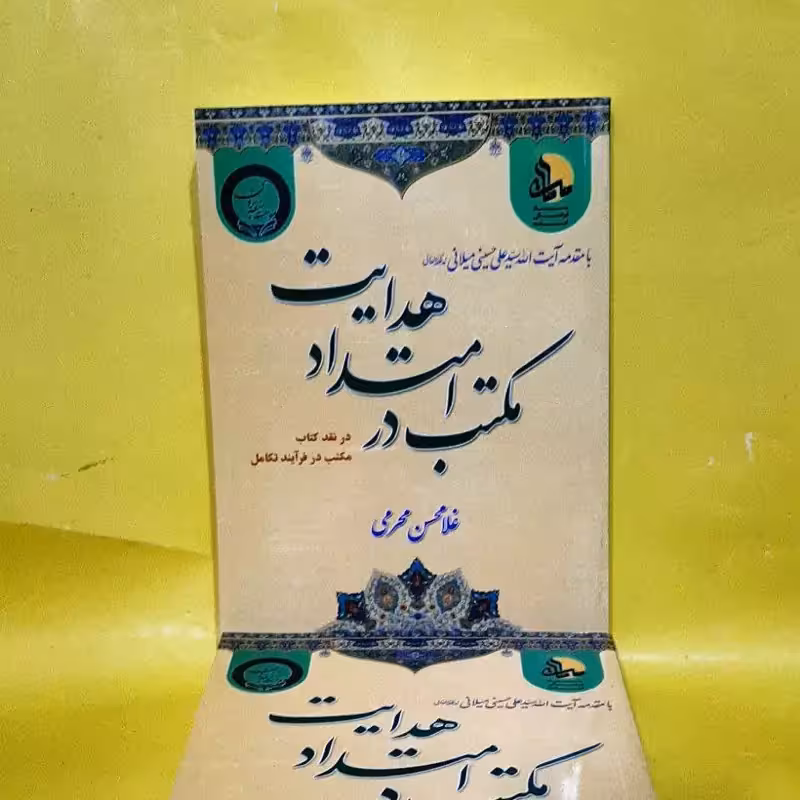 با مقدمه آیت الله سید علی حسینی میلانی
مکتب در امتداد هدایت
در نقد کتاب
مکتب در فرآیند تکامل
غلامحسن محرمی
با مقدمه آیت الله سید علی حسینی میلانی
مکتب در امتداد هدایت